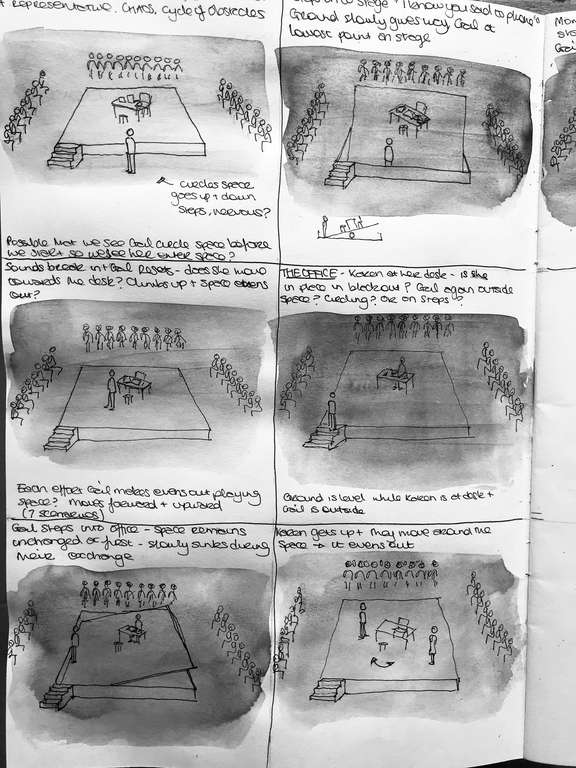 Representative. CHAOS, cycle of obstacles
circles space
goes up + down
steps, nervous?
Possible that we see Gail circle space before
we start so we see her enter space?
stage + I know you said to
Ground slowly gives way Gail at
lowest point on stage
Sounds break in + Gail Resets - does she move
towards the desk? Climbs up + space evens
out?
Each effort Gail makes evens out playing
space? moves forward + upward
(7 scenarios)
THE OFFICE - Karen at her desk - is she
in place in blackout? Gail again outside
space? Circling? Or on steps?
Ground is level while Karen is at desk +
Gail is outside
Gail steps into office - space remains
unchanged at first - slowly sinks during
their exchange
Karen gets up + they move around the
space → it evens out